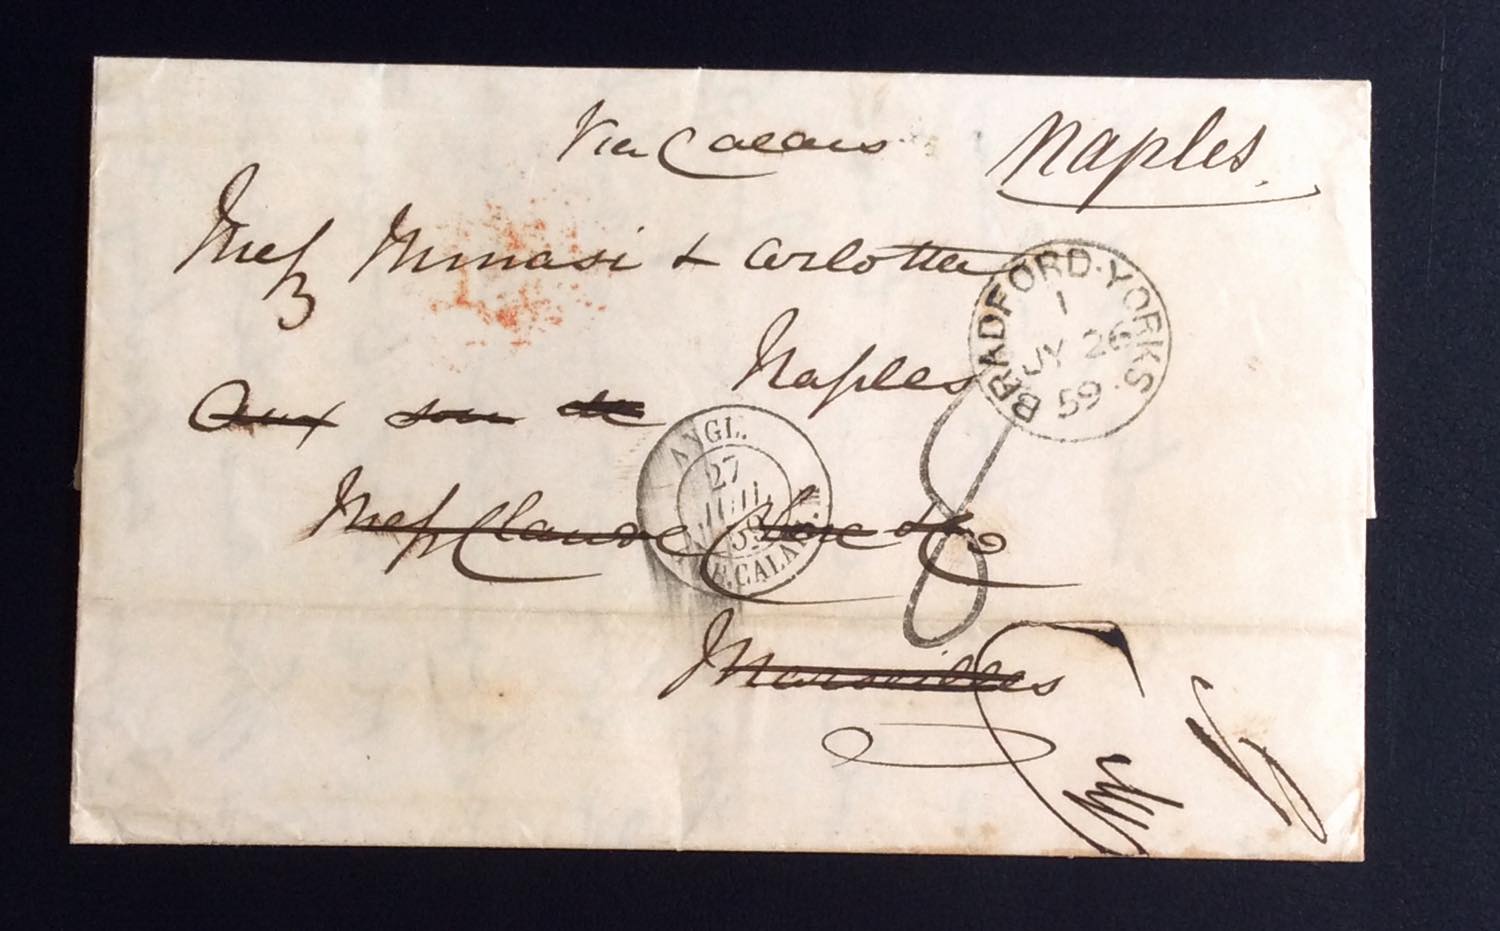 Via Calais
Naples
Mess Minasi & Carlotta
Naples
BRADFORD·YORKS
1
JY 26
59
Aux soin de
ANGL.
27
JUIL.
59
CALAIS
Mess Claude & Co
8
Marseilles